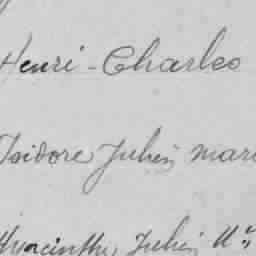 Henri-Charles
Isidore Julien mari
Hyacinthe Julien M.